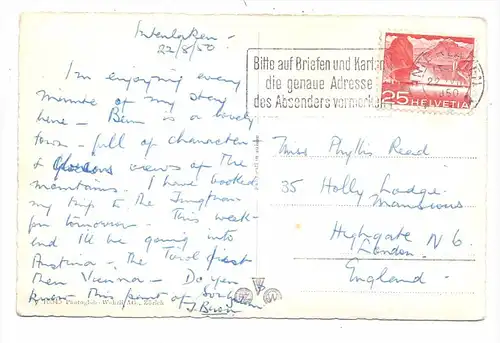 Interlaken -
22/8/50
I'm enjoying every
minute of my stay
here - Bern is a lovely
town - full of character
& glorious views of the
mountains. I have booked
my trip to the Jungfrau
for tomorrow. This week-
end I'll be going into
Austria - the Tirol first
then Vienna - Do you
know this part of
Bitte auf Briefen und Karten
die genaue Adresse
des Absenders vormerken
25 HELVETIA
Miss Phyllis Read
35 Holly Lodge
Mansions
Highgate N 6.
London.
England -
Photoglob-Wehrli AG., Zürich